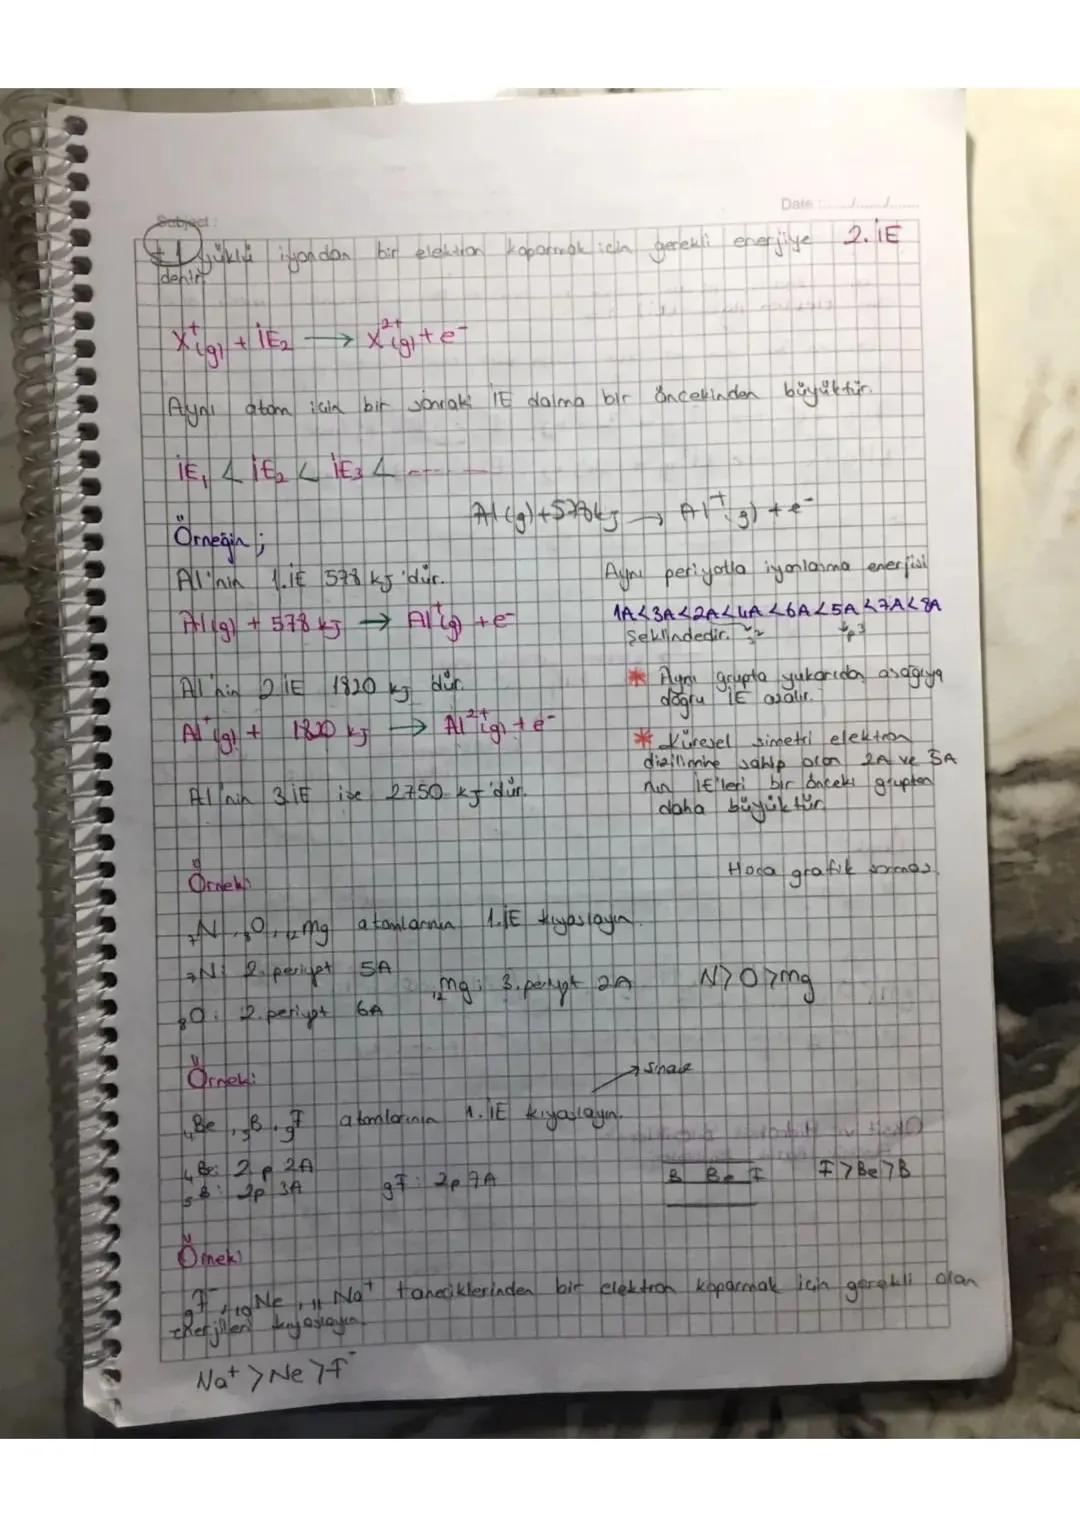 Subject:
Date:
+1 yüklü iyondan bir elektron koparmak için gerekli enerjiye 2.İE
denir.
X⁺(g) + İE₂ → X²⁺(g) + e⁻
Aynı atom için bir sonraki İE daima bir öncekinden büyüktür.
İE₁ < İE₂ < İE₃ < -----
Al(g) + 578 kJ → Al⁺(g) + e⁻
Örneğin;
Al'nin 1.İE 578 kJ'dür.
Al(g) + 578 kJ → Al⁺(g) + e⁻
Al'nin 2.İE 1820 kJ'dür.
Al⁺(g) + 1820 kJ → Al²⁺(g) + e⁻
Al'nin 3.İE ise 2750 kJ'dür.
Aynı periyotta iyonlaşma enerjisi
1A<3A<2A<4A<6A<5A<7A<8A
şeklindedir. s² p³
* Aynı grupta yukarıdan aşağıya
doğru İE azalır.
* Küresel simetri elektron
dizilimine sahip olan 2A ve 5A
nın İE'leri bir önceki gruptan
daha büyüktür.
Hoca grafik sormaz.
Örnek:
₇N, ₈O, ₁₂Mg atomlarının 1.İE kıyaslayın.
₇N: 2. periyot 5A
₁₂Mg: 3. periyot 2A N>O>Mg
₈O: 2. periyot 6A
Örnek:
→
₄Be, ₅B, ₉F atomlarının 1.İE kıyaslayın.
₄Be: 2p 2A
₅B: 2p 3A ₉F: 2p 7A
B Be F F>Be>B
Örnek:
₉F⁻, ₁₀Ne, ₁₁Na⁺ taneciklerinden bir elektron koparmak için gerekli olan
enerjileri kıyaslayın.
Na⁺>Ne>F⁻